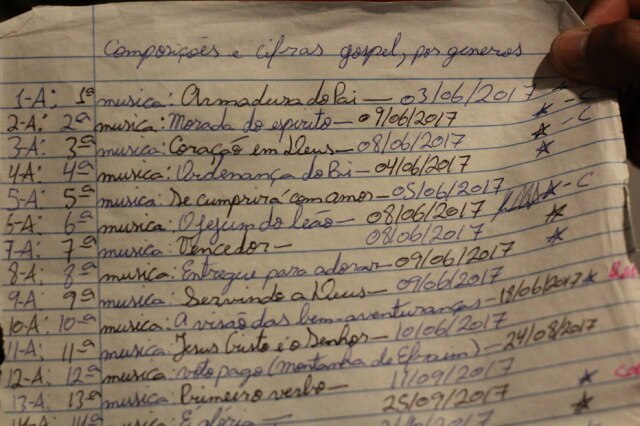 Composições e cifras gospel, por generos
1-A: 1ª musica: Armadura do Pai — 03/06/2017 * - C
2-A: 2ª musica: Morada do espirito — 09/06/2017 * - C
3-A: 3ª musica: Coração em Deus — 08/06/2017 *
4-A: 4ª musica: Ordenança do Pai — 04/06/2017
5-A: 5ª musica: Se cumprirá com amor — 05/06/2017 * - C
6-A: 6ª musica: O jejum do leão — 08/06/2017
7-A: 7ª musica: Vencedor — 08/06/2017 *
8-A: 8ª musica: Entregue para adorar — 09/06/2017
9-A: 9ª musica: Servindo a Deus — 09/06/2017
10-A: 10-ª musica: A visão das bem-aventuranças — 18/06/2017 *
11-A: 11-ª musica: Jesus Cristo é o Senhor — 10/06/2017
12-A: 12ª musica: voto pago (montanha de Efraim) — 24/08/2017
13-A: 13ª musica: Primeiro verbo — 11/09/2017 *
14-A: 14ª musica: É glória — 25/09/2017 *